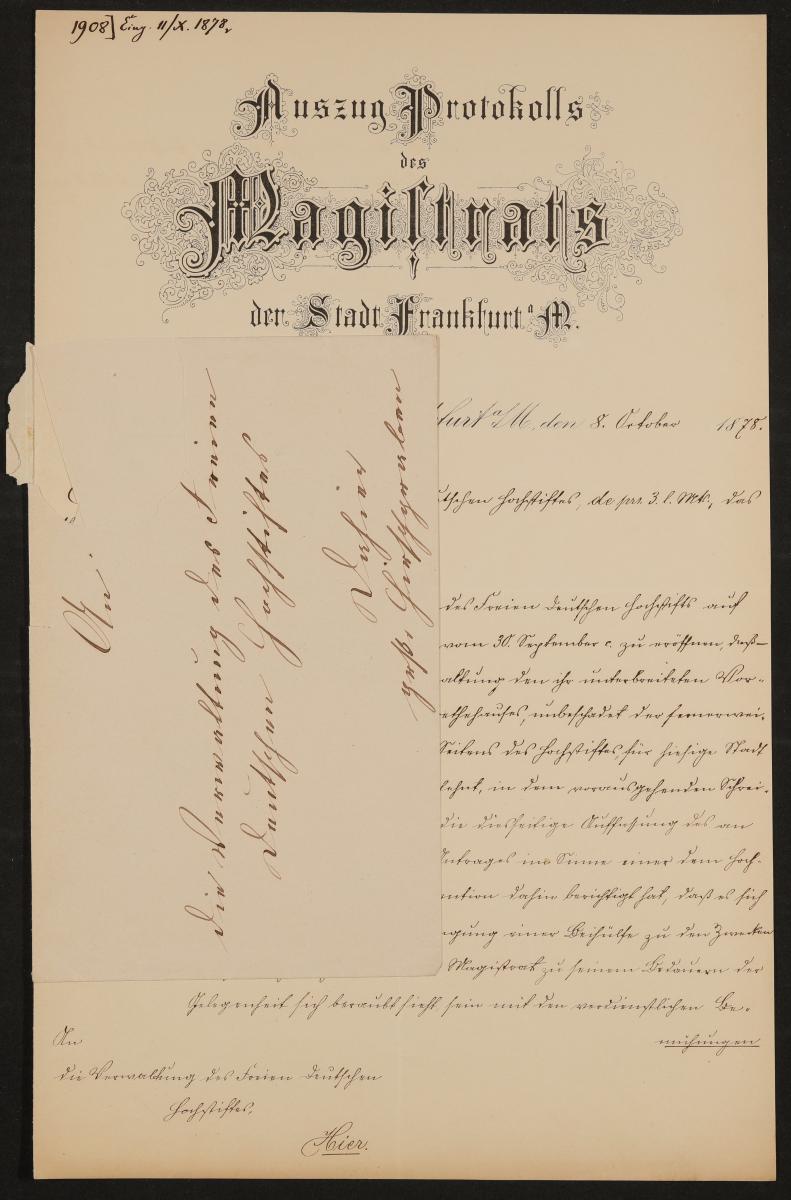 1908] Eing. 11/X. 1878,
Auszug Protokolls
des
Magistrats
der Stadt Frankfurt a M.
furt a/M, den 8. October 1878.
tschen Hochstiftes, de prs. 3. l. Mts., das
des Freien Deutschen Hochstifts auf
vom 30. September c. zu eröffnen, daß
altung den ihr unterbreiteten Vor-
ethehauses, unbeschadet der fernerwei-
Seitens des Hochstiftes, für hiesige Stadt
lehnt, in dem vorausgehenden Schrei-
die diesseitige Auffassung des an
Antrages im Sinne einer dem Hoch-
ention dahin berichtigt hat, daß es sich
igung einer Beihülfe zu den Zwecken
Magistrat zu seinem Bedauern der
Gelegenheit sich beraubt sieht, sein mit den verdienstlichen Be-
mühungen
An
die Verwaltung des Freien Deutschen
Hochstiftes,
Hier.
An
die Verwaltung des Freien
Deutschen Hochstiftes
Dahier
große Hirschgraben